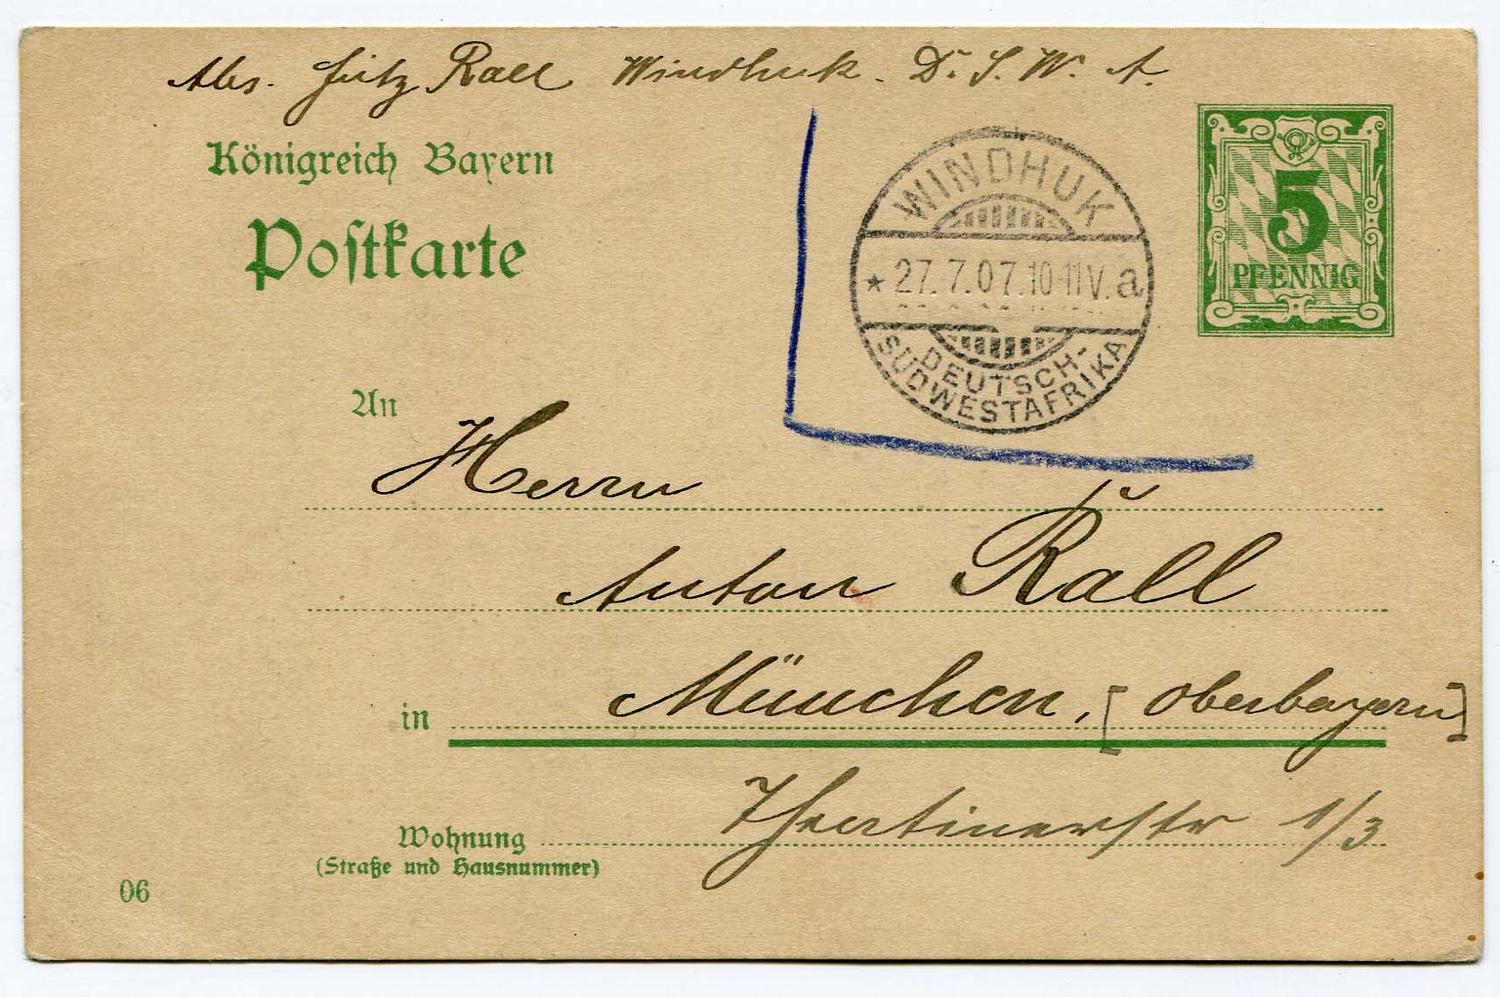 Abs. Fritz Rall Windhuk. D. S. W. A.
Königreich Bayern
Postkarte
WINDHUK
* 27.7.07.10-11V. a
DEUTSCH-
SÜDWESTAFRIKA
5
PFENNIG
An
Herrn
Anton Rall
in München, [Oberbayern]
Wohnung 1/3
(Straße und Hausnummer)
06